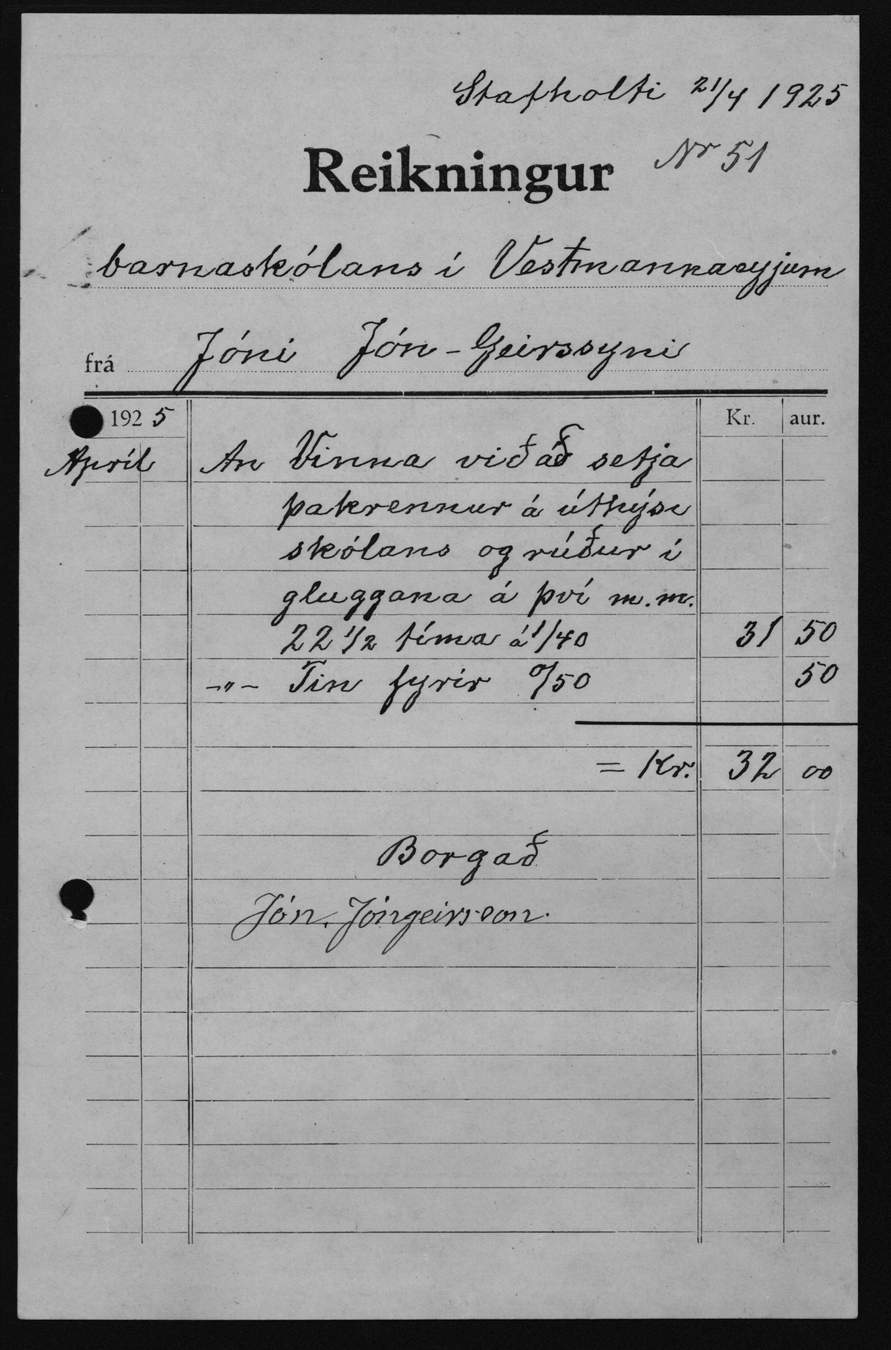 Stafholti 21/4 1925
Reikningur Nr 51
barnaskólans í Vestmannaeyjum
frá Jóni Jón-Geirssyni
1925 Kr. aur.
Apríl An Vinna við að setja
þakrennur á úthýsi
skólans og rúður í
gluggana á því m.m.
22 1/2 tíma á 1/40 31 50
-„- Tin fyrir 0/50 50
= Kr. 32 00
Borgað
Jón. Jóngeirsson.